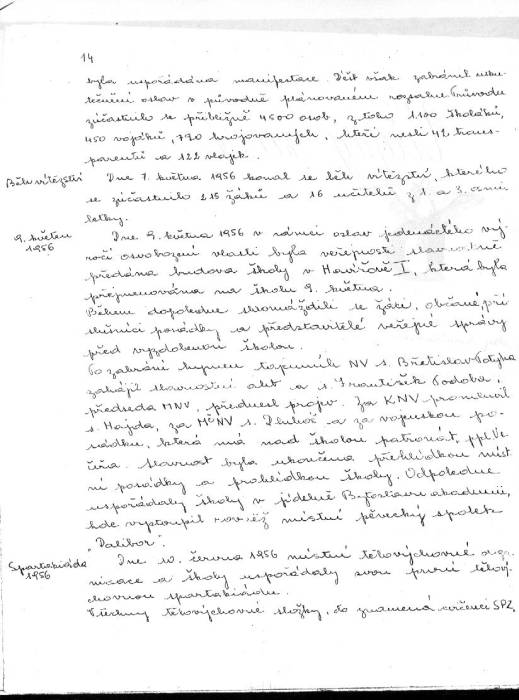 14
byla uspořádána manifestace. Déšť však zabránil usku-
tečnění oslav v původně plánovaném rozsahu. Průvodu
zúčastnilo se přibližně 4500 osob, z toho 1.100 školáků,
450 vojáků, 790 krojovaných, kteří nesli 42 trans-
parentů a 122 vlajk.
Běh vítězství
Dne 7. května 1956 konal se běh vítězství, kterého
se zúčastnilo 115 žáků a 16 učitelů z 1. a 3. osmi
letky.
9. květen
1956
Dne 9. května 1956 v rámci oslav jedenáctého vý-
ročí osvobození vlasti byla veřejnosti slavnostně
předána budova školy v Havířově I, která byla
přejmenována na školu 9. května.
Během dopoledne shromáždili se žáci, občané, pří
slušníci posádky a představitelé veřejné správy
před vyzdobenou školou.
Po zahrání hymen tajemník NV s. Břetislav
zahájil slavnostní akt a s. František Podoba,
předseda MNV, přednesl projev. Za KNV promluvil
s. Hajda, za MNV s. a za vojenskou po-
sádku, která má nad školou patronát, pplk.
Slavnost byla ukončena přehlídkou míst
ní posádky a prohlídkou školy. Odpoledne
uspořádaly školy v jídelně akademii,
kde vystoupil rovněž místní pěvecký spolek
"Dalibor".
Spartakiáda
1956
Dne 10. června 1956 místní tělovýchovné orga-
nisace a školy uspořádaly svou první tělový-
chovnou spartakiádu.
Všechny tělovýchovné složky, to znamená cvičenci SPZ,